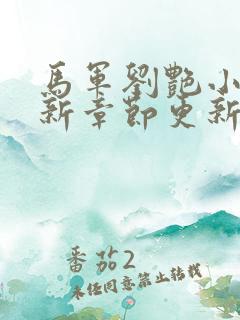 馬軍劉艷小
新章節更新
番茄2
未経同意禁止转载